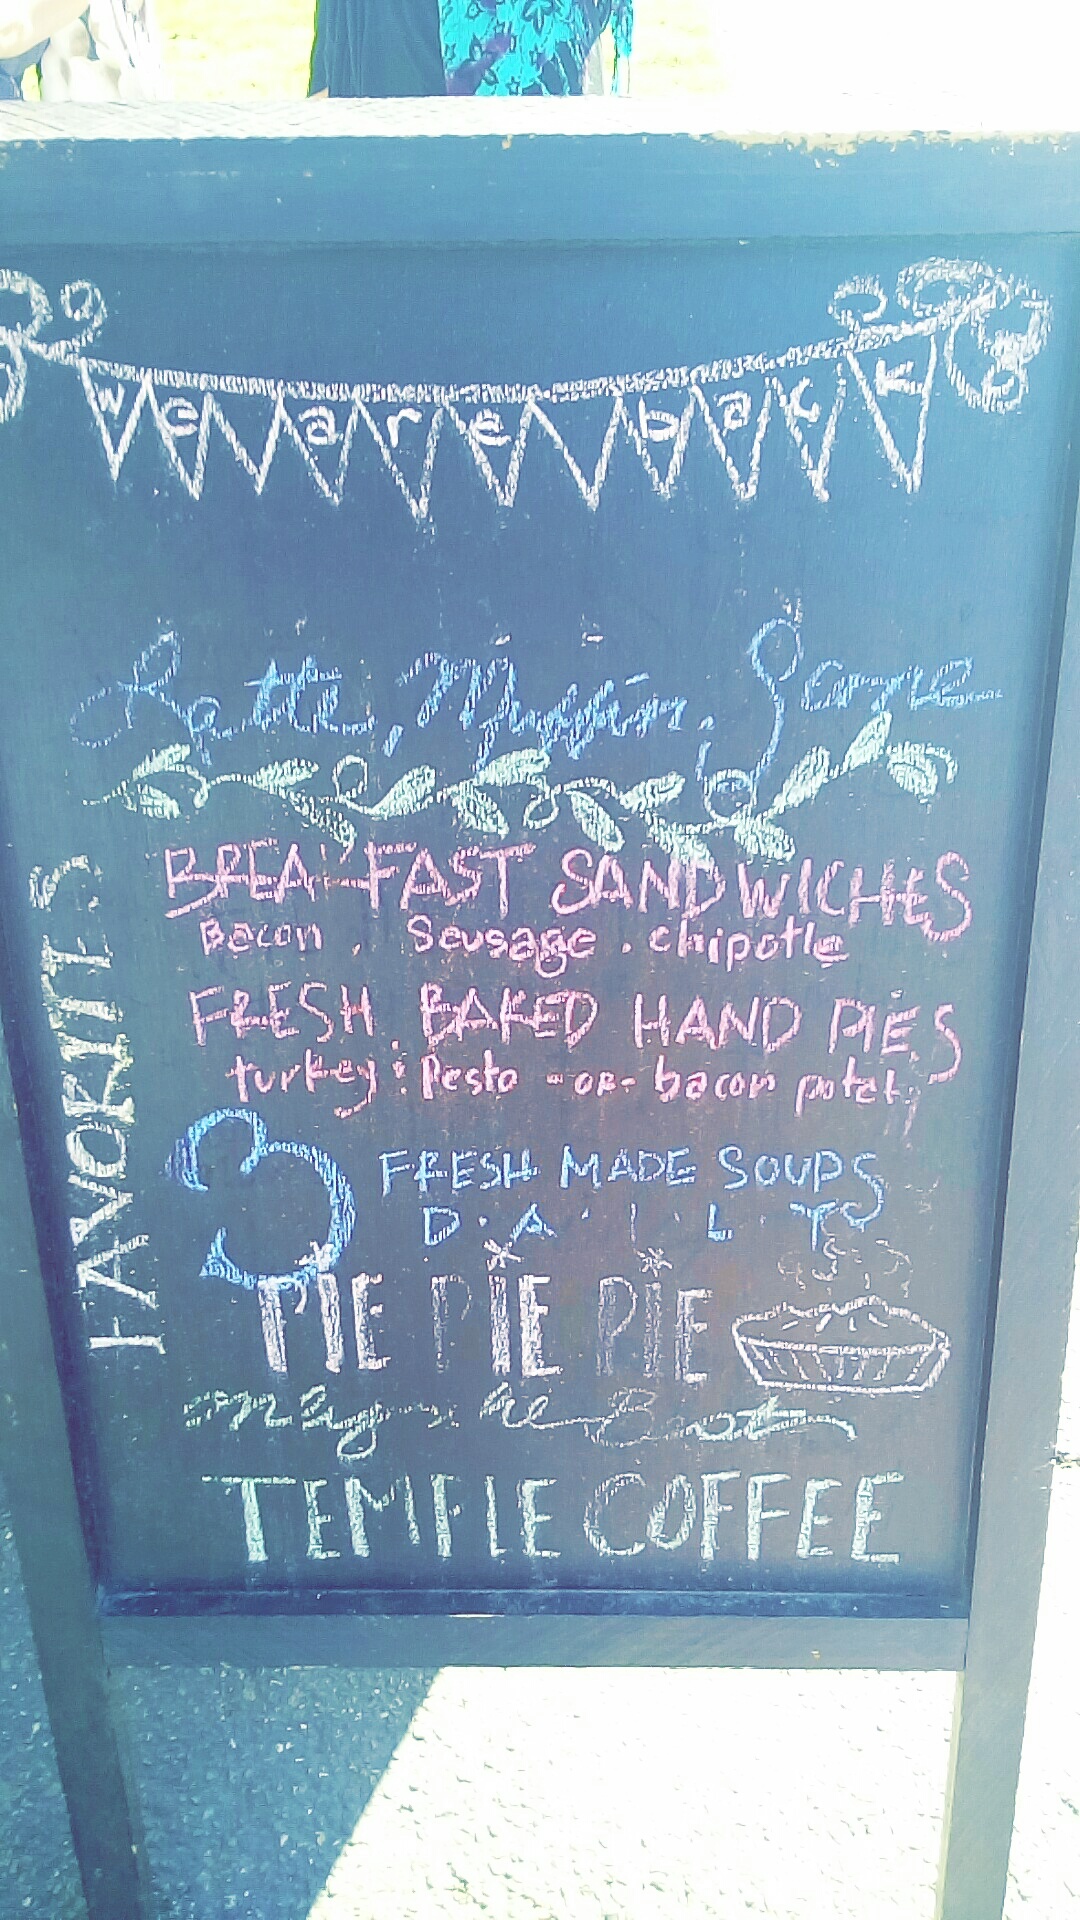 we are back
Latte, Muffin, Scone
FAVORITES
BREAKFAST SANDWICHES
Bacon, Sausage, chipotle
FRESH BAKED HAND PIES
turkey: Pesto -or- bacon potat
3 FRESH MADE SOUPS
D·A·I·L·Y
PIE PIE PIE
TEMPLE COFFEE